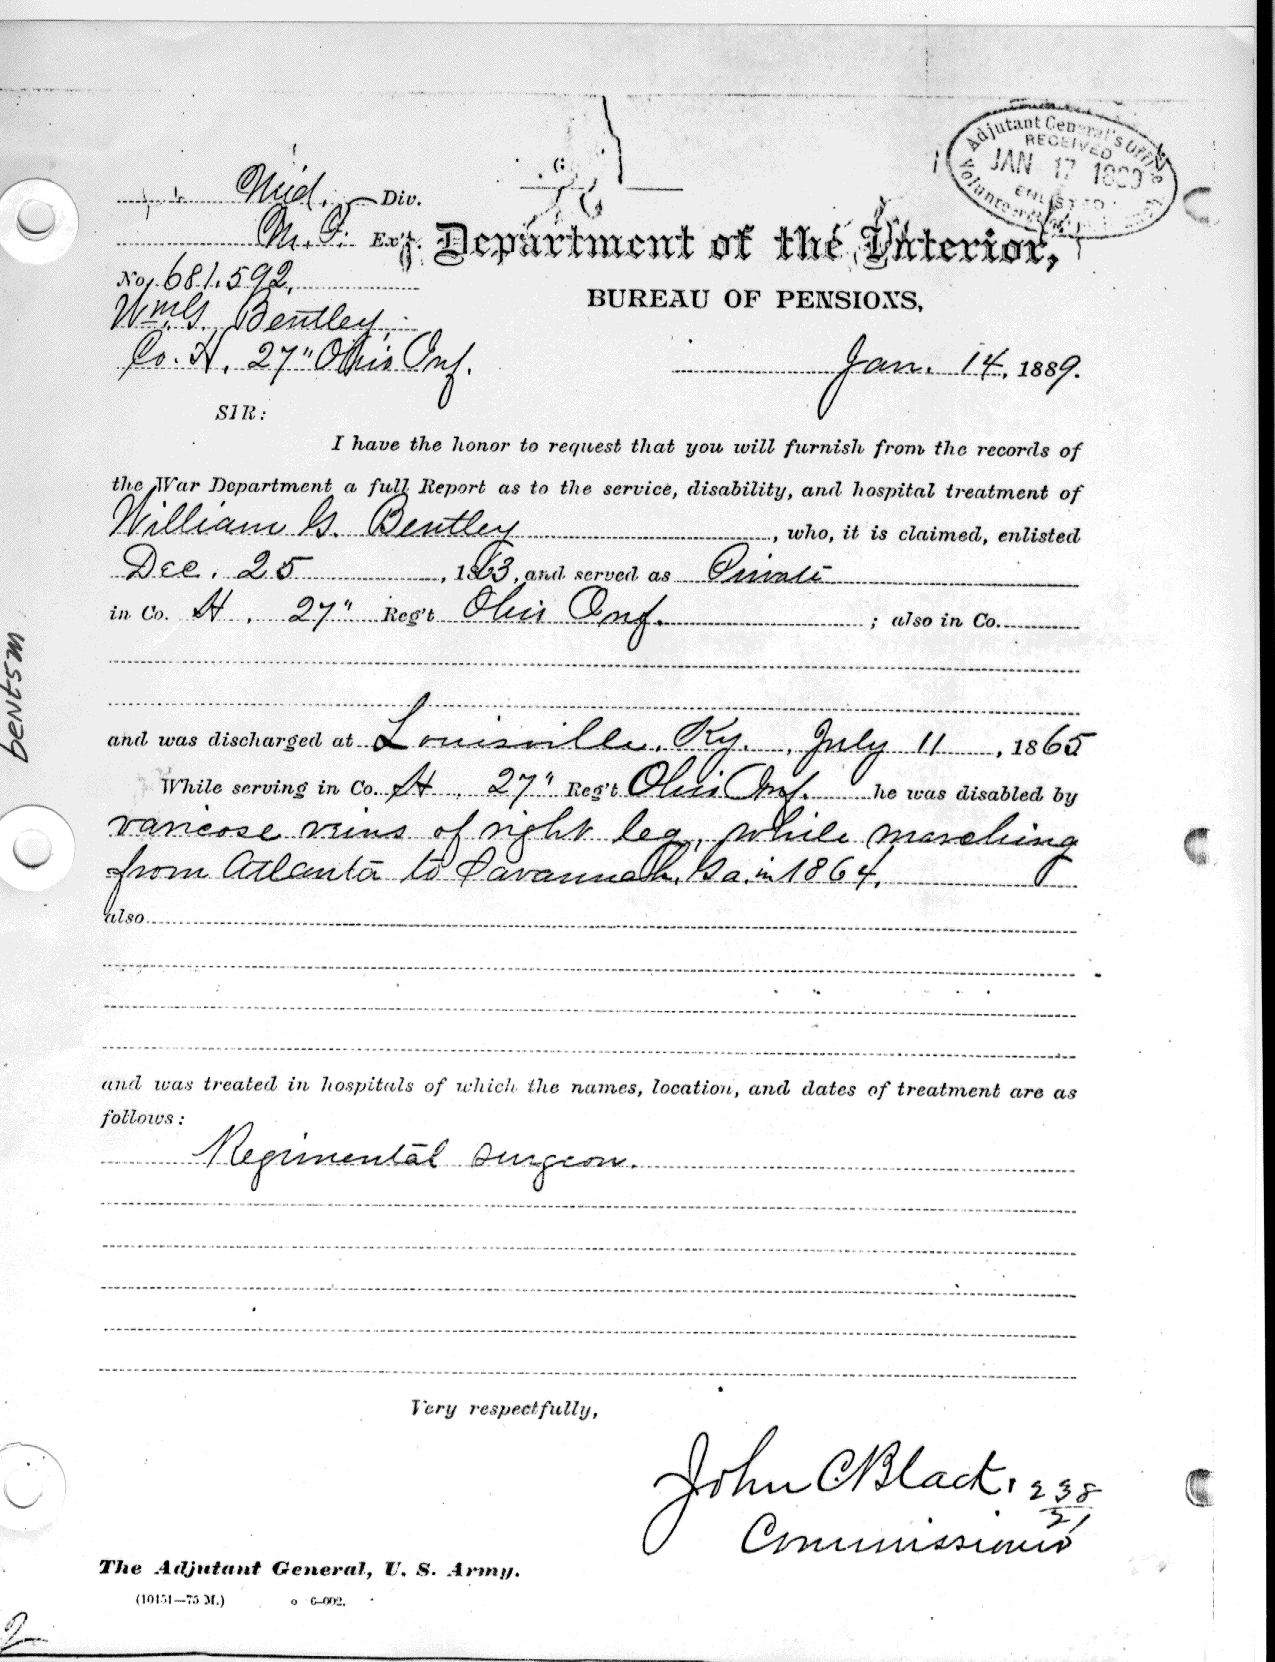 Mid. Div.
M.F. Ex'r.
No. 681.592.
Wm G. Bentley,
Co. H, 27" Ohio Inf.
Adjutant General's Office
RECEIVED
JAN 17 1889
ENLISTED
Volunteer
Department of the Interior,
BUREAU OF PENSIONS,
Jan. 14, 1889.
SIR:
I have the honor to request that you will furnish from the records of
the War Department a full Report as to the service, disability, and hospital treatment of
William G. Bentley, who, it is claimed, enlisted
Dec. 25, 1863, and served as Private
in Co. H, 27" Reg't Ohio Inf. ; also in Co.
and was discharged at Louisville, Ky., July 11, 1865
While serving in Co. H, 27" Reg't Ohio Inf. he was disabled by
varicose veins of right leg, while marching
from Atlanta to Savannah, Ga. in 1864.
also
and was treated in hospitals of which the names, location, and dates of treatment are as
follows:
Regimental surgeon.
Very respectfully,
John C Black, 238
21
Commissioner
The Adjutant General, U. S. Army.
(10151—75 M.) 6-002.
bentsm
2